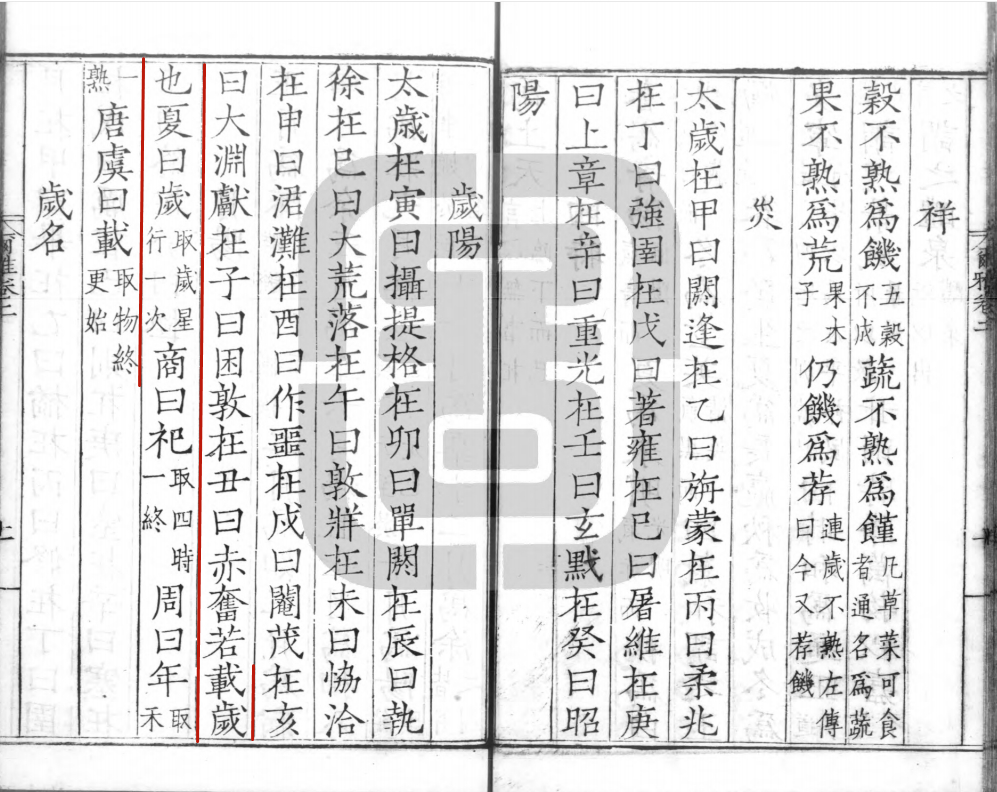 祥
穀不熟爲饑五穀不成蔬不熟爲饉凡草菜可食者通名爲蔬
果不熟爲荒果木子仍饑爲荐連歲不熟左傳曰今又荐饑
災
太歲在甲曰閼逢在乙曰旃蒙在丙曰柔兆
在丁曰強圉在戊曰著雍在己曰屠維在庚
曰上章在辛曰重光在壬曰玄黓在癸曰昭
陽
歲陽
太歲在寅曰攝提格在卯曰單閼在辰曰執
徐在巳曰大荒落在午曰敦牂在未曰協洽
在申曰涒灘在酉曰作噩在戌曰閹茂在亥
曰大淵獻在子曰困敦在丑曰赤奮若載歲
也夏曰歲取歲星行一次商曰祀取四時一終周曰年取禾
一熟唐虞曰載取物終更始
歲名